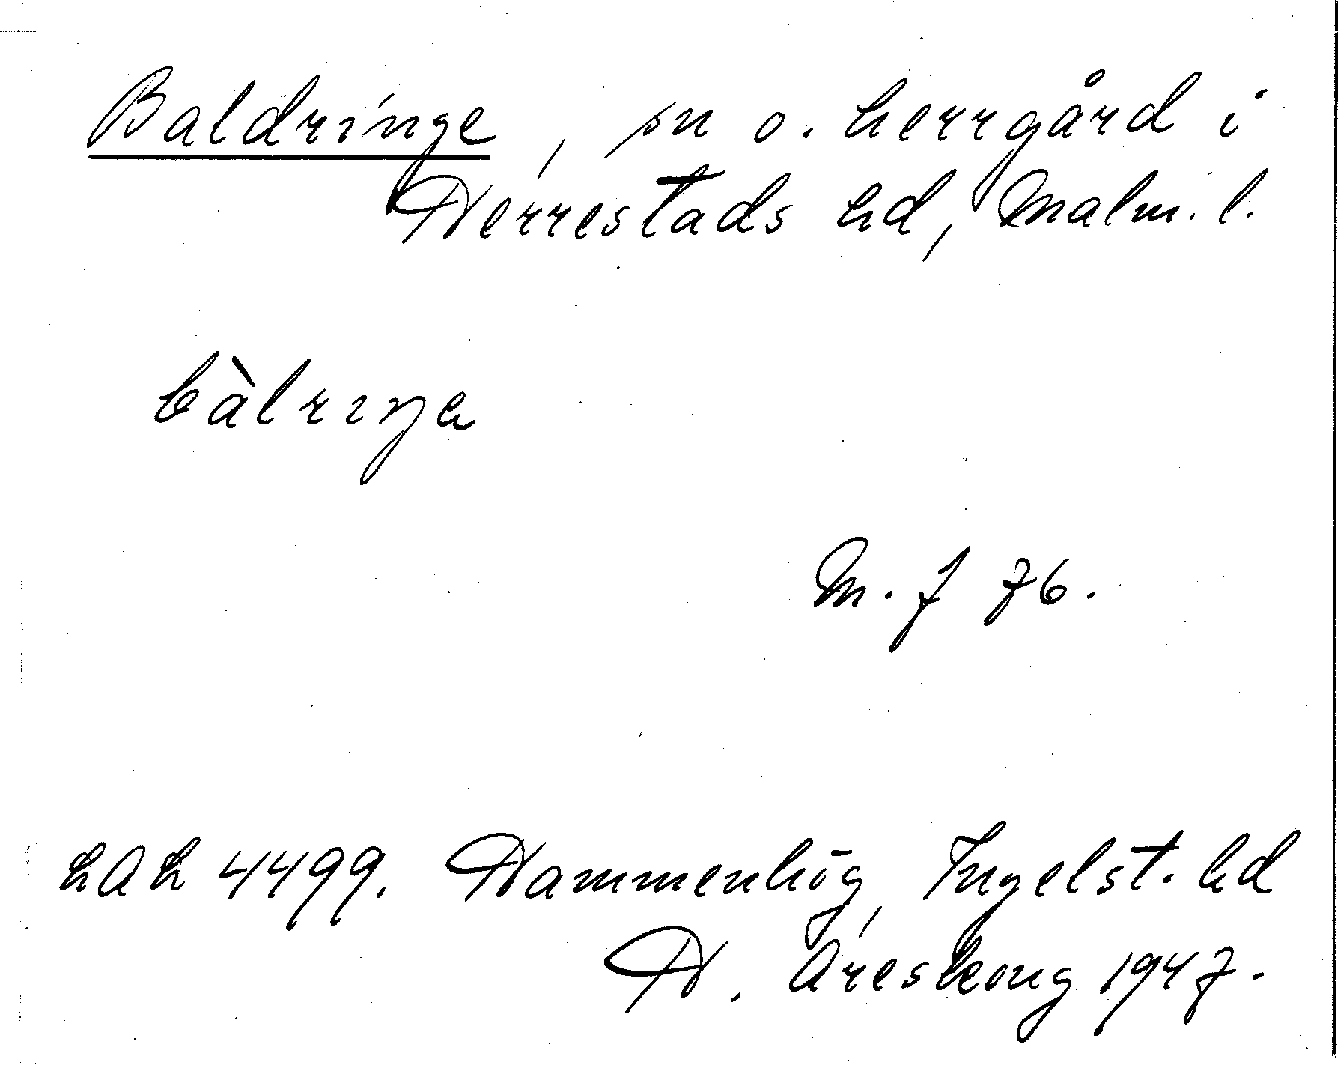 Baldringe, sn o. herrgård i
Herrestads hd, Malm. l.
bàlrıŋa
M. J 76.
LAL 4499. Hammenhög, Ingelst. hd
H. Areskoug 1947.